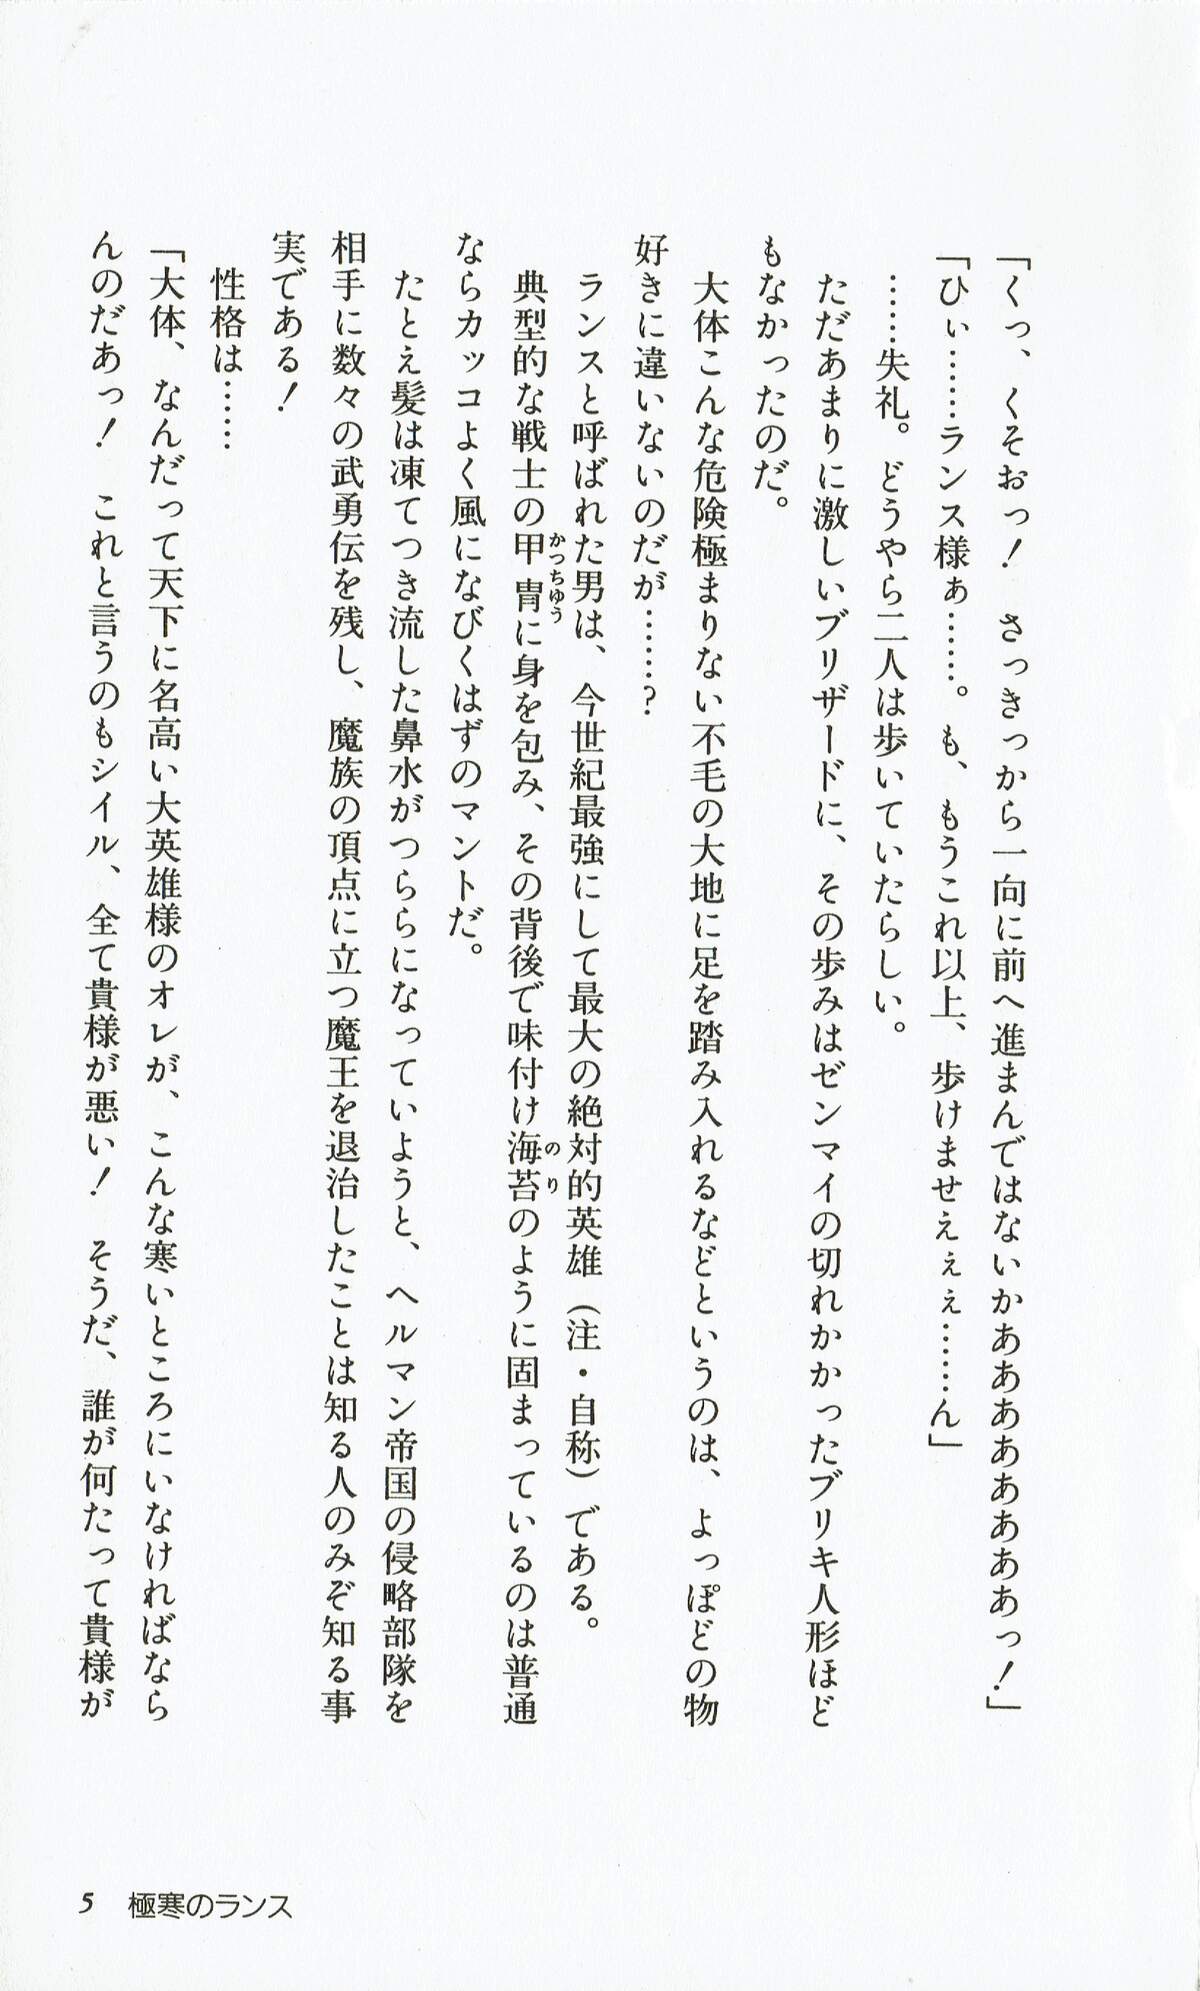 「くっ、くそおっ！　さっきっから一向に前へ進まんではないかあああああああああっ！」
「ひぃ……ランス様ぁ……。も、もうこれ以上、歩けませえぇぇ……ん」
……失礼。どうやら二人は歩いていたらしい。
ただあまりに激しいブリザードに、その歩みはゼンマイの切れかかったブリキ人形ほど
もなかったのだ。
大体こんな危険極まりない不毛の大地に足を踏み入れるなどというのは、よっぽどの物
好きに違いないのだが……？
ランスと呼ばれた男は、今世紀最強にして最大の絶対的英雄（注・自称）である。
典型的な戦士の甲冑に身を包み、その背後で味付け海苔のように固まっているのは普通
かっちゅう
のり
ならカッコよく風になびくはずのマントだ。
たとえ髪は凍てつき流した鼻水がつららになっていようと、ヘルマン帝国の侵略部隊を
相手に数々の武勇伝を残し、魔族の頂点に立つ魔王を退治したことは知る人のみぞ知る事
実である！
性格は……
「大体、なんだって天下に名高い大英雄様のオレが、こんな寒いところにいなければなら
んのだあっ！　これと言うのもシイル、全て貴様が悪い！　そうだ、誰が何たって貴様が
5　極寒のランス